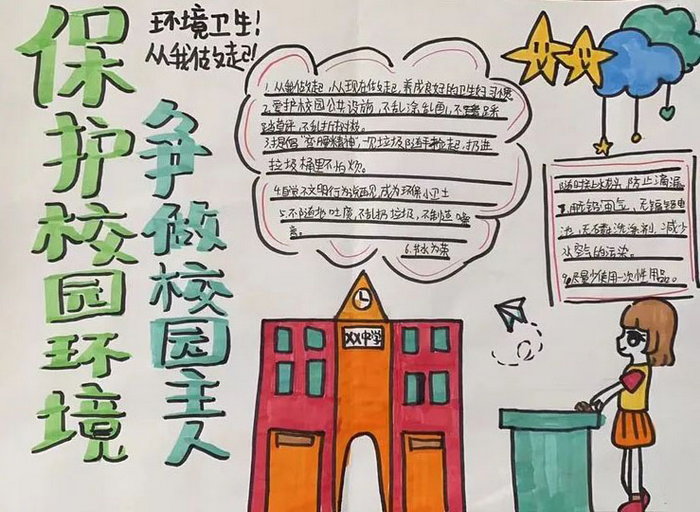 保护校园环境
争做校园主人
环境卫生！
从我做起！
1.从我做起,从现在做起,养成良好的卫生好习惯
2.爱护校园公共设施,不乱涂乱画,不踩
踏草坪,不乱折树枝。
3.提倡“弯腰精神”,见垃圾随手捡起,扔进
垃圾桶里
4.自觉不文明行为说再见,成为环保小卫士
5.不随地吐痰,不乱扔垃圾,不制造噪
音。
6.节水为荣
随时关上水龙头,防止滴漏
用无铅汽油,无镉铅电
池,无磷洗涤剂,减少
从空气的污染。
9.尽量少使用一次性用品。
XX中学